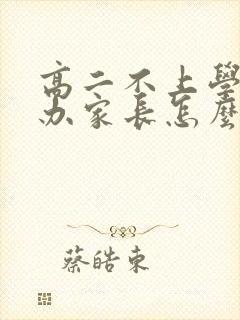 高二不上學
办家长怎麼
蔡皓東